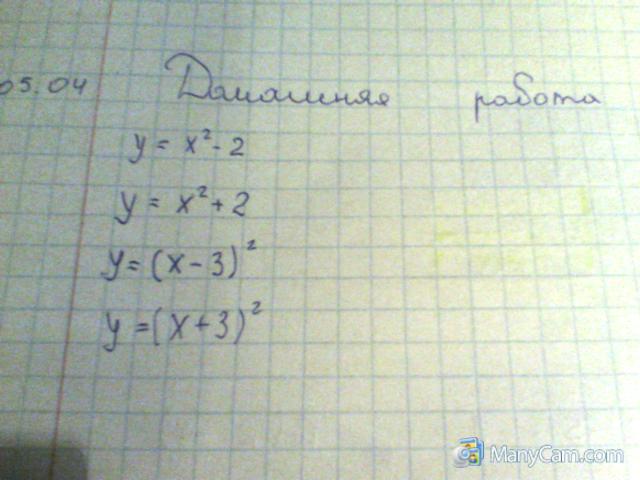 05.04 Домашняя работа
y = x² - 2
y = x² + 2
y = (x - 3)²
y = (x + 3)²
ManyCam.com